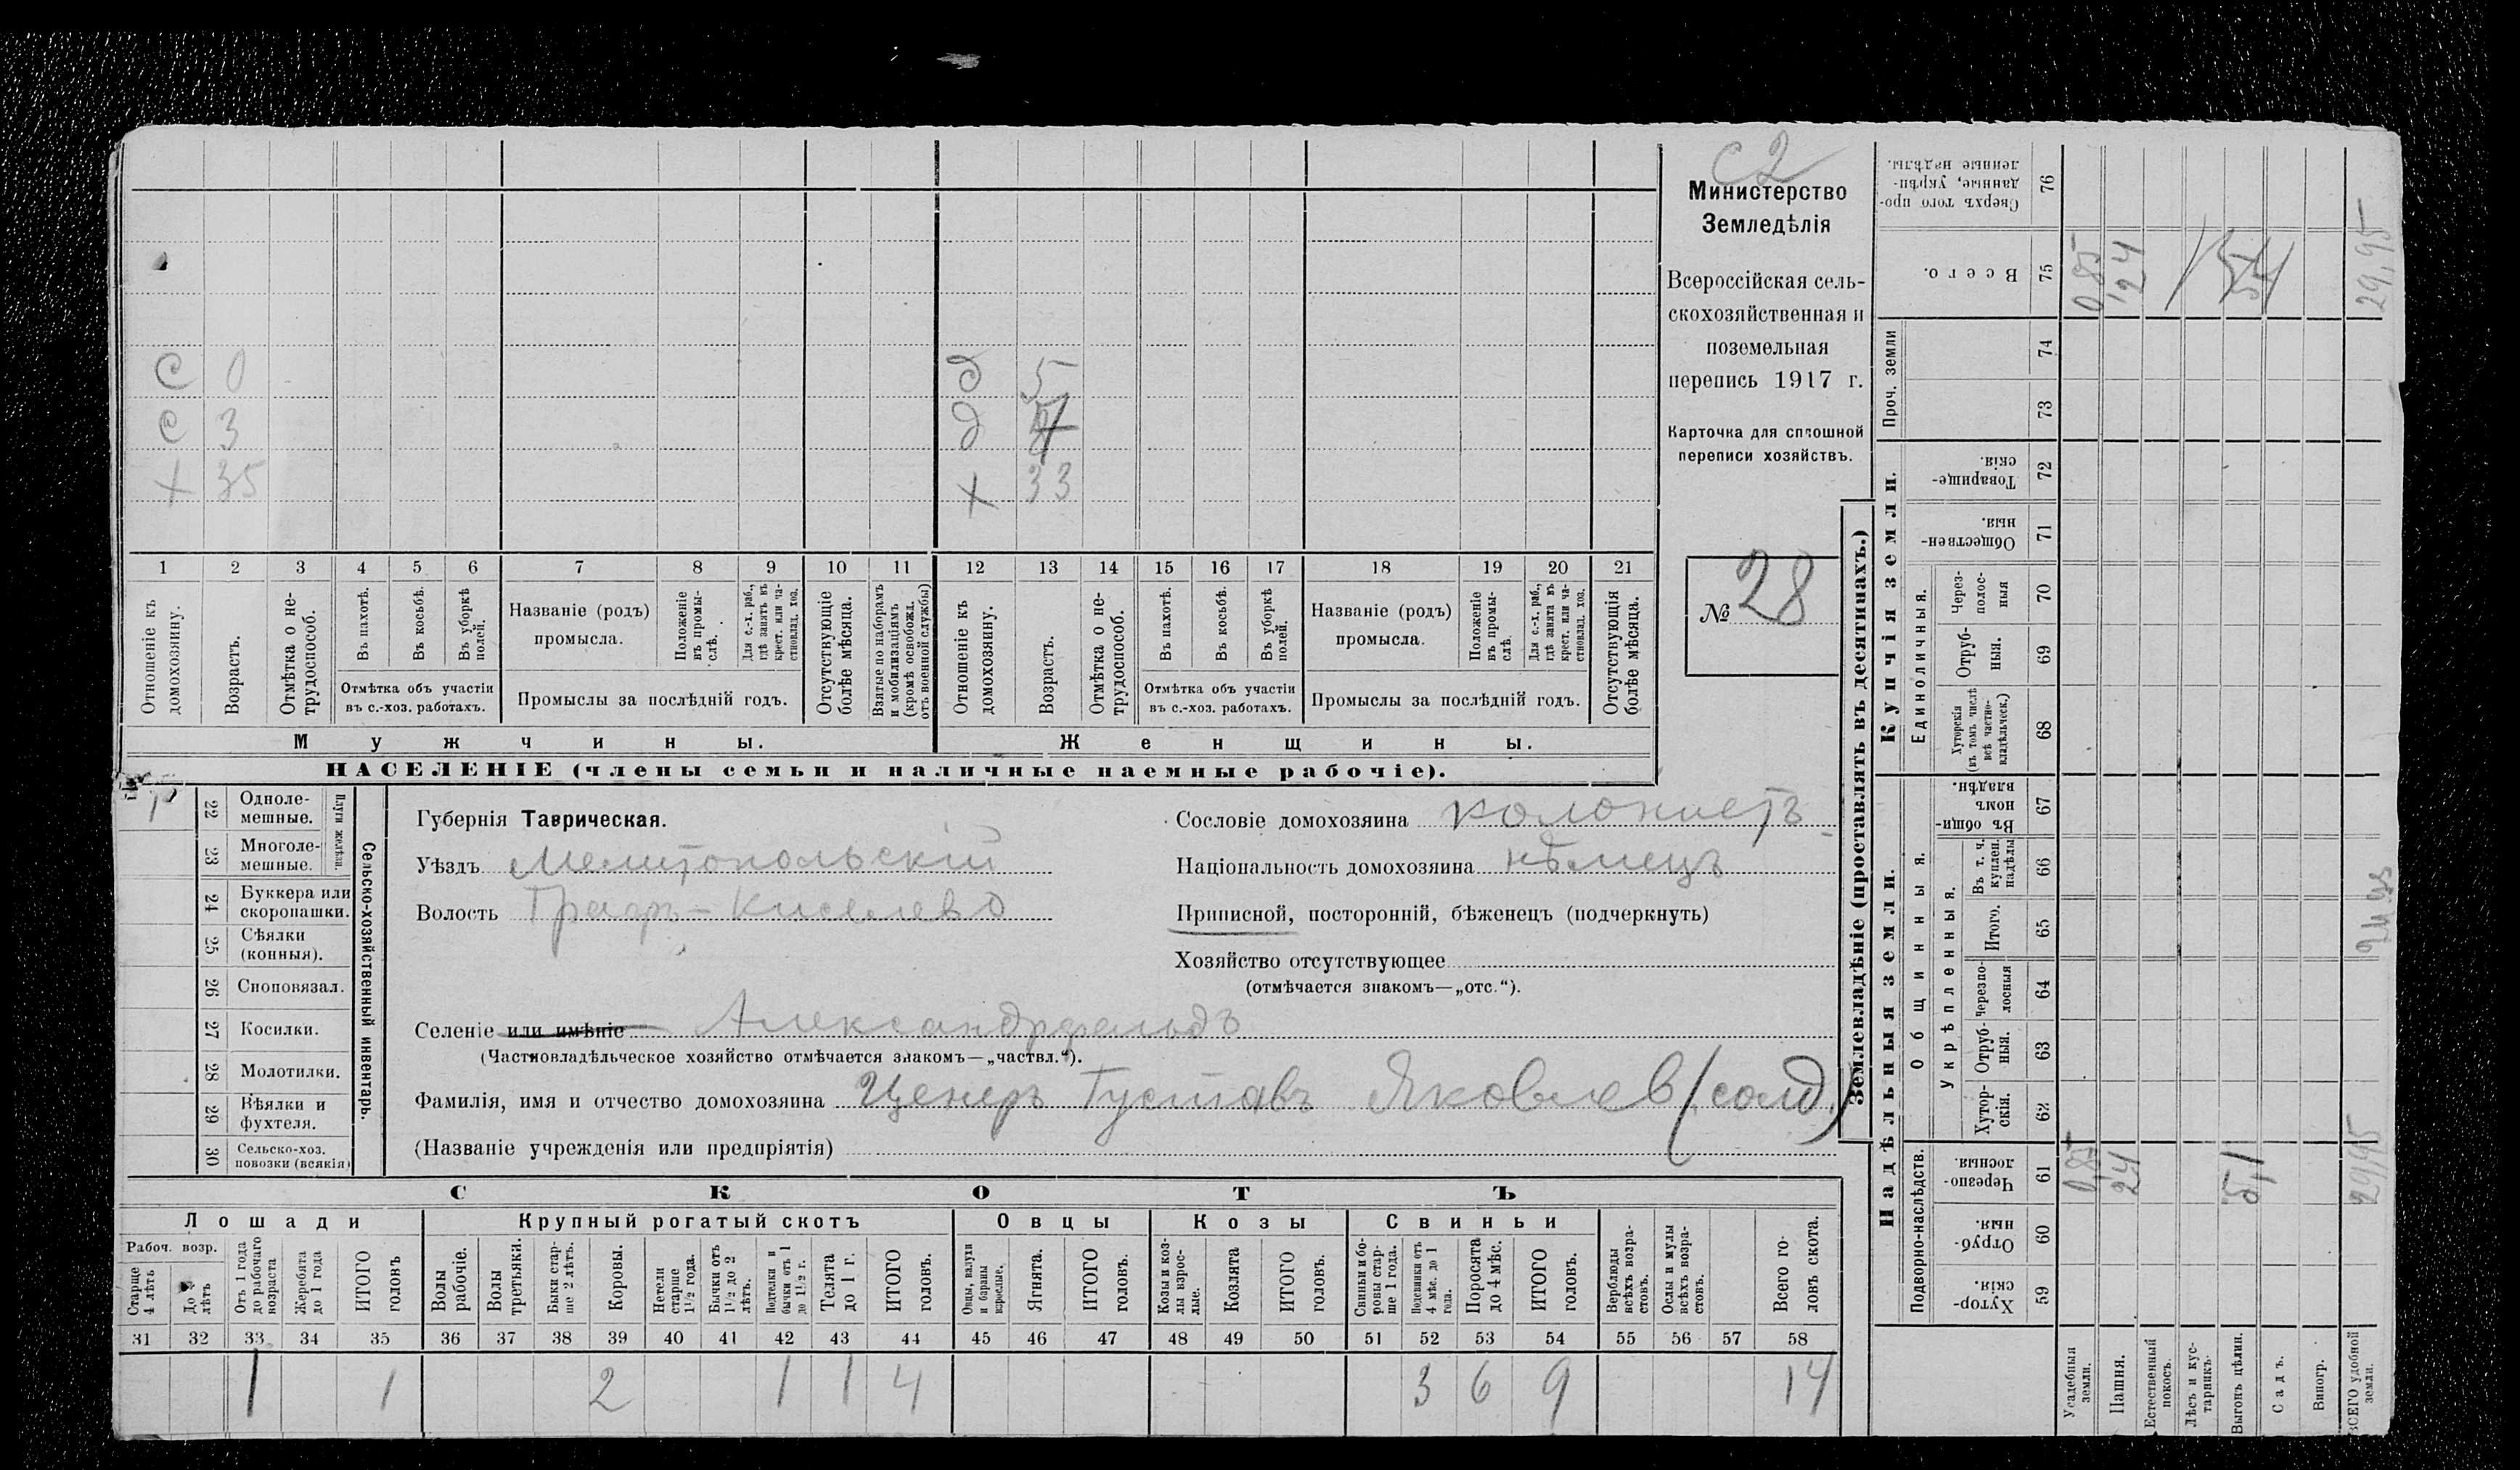 С2
Министерство
Земледѣлія
Всероссійская сель-
скохозяйственная и
поземельная
перепись 1917 г.
Карточка для сплошной
переписи хозяйствъ.
№ 28
С 0 д 5
С 3 д
+ 35 + 33
1 2 3 4 5 6 7 8 9 10 11 12 13 14 15 16 17 18 19 20 21
Отношеніе къ домохозяину.
Возрастъ.
Отмѣтка о не-
трудоспособ.
Въ пахотѣ.
Въ косьбѣ.
Въ уборкѣ полей.
Отмѣтка объ участіи
въ с.-хоз. работахъ.
Названіе (родъ)
промысла.
Положеніе въ промы-
слѣ.
Для с.-х. раб.,
гдѣ занятъ въ
крест. или ча-
стновлад. хоз.
Промыслы за послѣдній годъ.
Отсутствующіе
болѣе мѣсяца.
Взятые по наборамъ
и мобилизаціямъ
(кромѣ освобожд.
отъ военной службы)
Отношеніе къ
домохозяину.
Возрастъ.
Отмѣтка о не-
трудоспособ.
Въ пахотѣ.
Въ косьбѣ.
Въ уборкѣ
полей.
Отмѣтка объ участіи
въ с.-хоз. работахъ.
Названіе (родъ)
промысла.
Положеніе
въ промы-
слѣ.
Для с.-х. раб.,
гдѣ занята въ
крест. или ча-
стновлад. хоз.
Промыслы за послѣдній годъ.
Отсутствующія
болѣе мѣсяца.
Мужчины. Женщины.
НАСЕЛЕНІЕ (члены семьи и наличные наемные рабочіе).
Сельско-хозяйственный инвентарь.
Плуги желѣзн.
22 Одноле-
мешные.
23 Многоле-
мешные.
24 Буккера или
скоропашки.
25 Сѣялки
(конныя).
26 Сноповязал.
27 Косилки.
28 Молотилки.
29 Вѣялки и
фухтеля.
30 Сельско-хоз.
повозки (всякія)
Губернія Таврическая.
Уѣздъ Мелитопольскій
Волость Графъ-Киселево
Сословіе домохозяина колонистъ
Національность домохозяина нѣмецъ
Приписной, посторонній, бѣженецъ (подчеркнуть)
Хозяйство отсутствующее
(отмѣчается знакомъ—„отс.“).
Селеніе или имѣніе Александрфельдъ
(Частновладѣльческое хозяйство отмѣчается знакомъ—„частвл.“).
Фамилія, имя и отчество домохозяина Ценеръ Густавъ Яковлев (солд.)
(Названіе учрежденія или предпріятія)
СКОТЪ
Лошади Крупный рогатый скотъ Овцы Козы Свиньи
Рабоч. возр.
Старще
4 лѣтъ
До
лѣтъ
Отъ 1 года
до рабочаго
возраста
Жеребята
до 1 года
ИТОГО
головъ
Волы
рабочіе.
Волы
третьяки.
Быки стар-
ше 2 лѣтъ.
Коровы.
Нетели
старше
1½ года.
Бычки отъ
1½ до 2
лѣтъ.
Подтелки и
бычки отъ 1
до 1½ г.
Телята
до 1 г.
ИТОГО
головъ.
Овцы, валухи
и бараны
взрослые.
Ягнята.
ИТОГО
головъ.
Козы и коз-
лы взрос-
лые.
Козлята
ИТОГО
головъ.
Свиньи и бо-
ровы стар-
ше 1 года.
Подсвинки отъ
4 мѣс. до 1
года.
Поросята
до 4 мѣс.
ИТОГО
головъ.
Верблюды
всѣхъ возра-
стовъ.
Ослы и мулы
всѣхъ возра-
стовъ.
Всего го-
ловъ скота.
31 32 33 34 35 36 37 38 39 40 41 42 43 44 45 46 47 48 49 50 51 52 53 54 55 56 57 58
1 1 2 1 1 4 3 6 9 14
Землевладѣніе (проставлять въ десятинахъ.)
Купчія земли.
Сверхъ того про-
данные, укрѣп-
ленные надѣлы. 76
Всего. 75 0,85 24 29,95
Проч. земли 74 73
Товарище-
скія. 72
Обществен-
ныя. 71
Единоличныя.
Через-
полос-
ныя 70
Отруб-
ныя. 69
Хуторскія
(въ томъ числѣ
всѣ частно-
владѣльческ.) 68
Надѣльныя земли.
Общинныя.
Въ общин-
номъ
владѣн. 67
Укрѣпленныя.
Въ т. ч.
куплен.
надѣлы 66
Итого. 65
Черезпо-
лосныя 64
Отруб-
ныя. 63
Хутор-
скія. 62
Подворно-наслѣдств.
Черезпо-
лосныя. 61 0,85 24 5,1 29,95
Отруб-
ныя. 60
Хутор-
скія. 59
Усадебныя
земли.
Пашня.
Естественный
покосъ.
Лѣсъ и кус-
тарникъ.
Выгонъ цѣлин.
Садъ.
Виногр.
ВСЕГО удобной
земли.